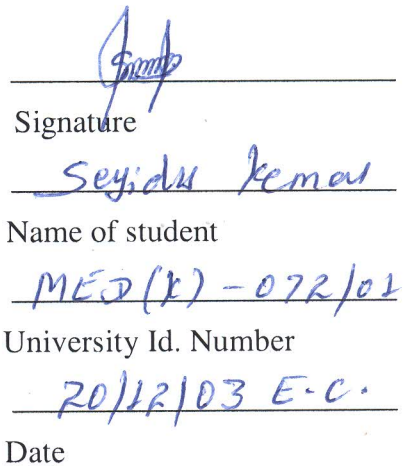 Signature
Seyidu Kemal
Name of student
MED(K)-072/01
University Id. Number
20/12/03 E.C.
Date